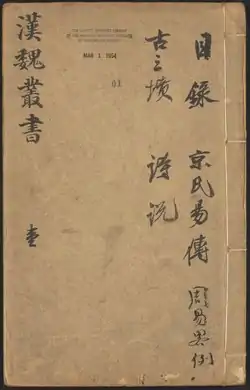 目錄 京氏易傳 周易畧例
古三墳 詩説
漢魏叢書 壹
MAR 1 1954
01